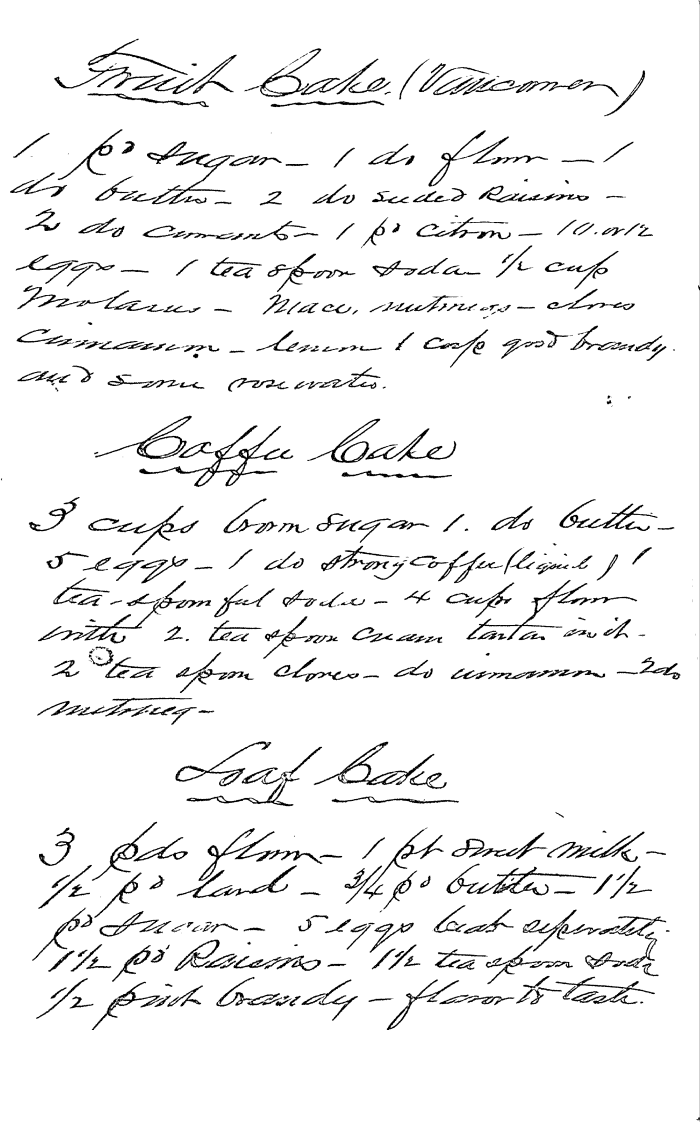 Fruit Cake. (Vancouver)
1 pd sugar – 1 do flour – 1
do butter – 2 do seeded Raisins –
2 do currants – 1 pd citron – 10 or 12
eggs – 1 tea spoon soda 1/2 cup
Molasses – Mace, nutmegs – cloves
Cinnamon – lemon 1 cup good brandy.
and some rosewater.
Coffee Cake
3 cups brown sugar 1. do butter –
5 eggs – 1 do strong coffee (liquid) 1
tea-spoonful soda – 4 cups flour
with 2. tea spoon cream tartar in it –
2 tea spoon cloves – do cinnamon – 2 do
nutmeg –
Loaf Cake
3 pds flour – 1 pt sweet milk –
1/2 pd lard – 3/4 pd butter – 1 1/2
pd sugar – 5 eggs beat seperately.
1 1/2 pd Raisins – 1 1/2 tea spoon soda
1/2 pint brandy – flavor to taste.